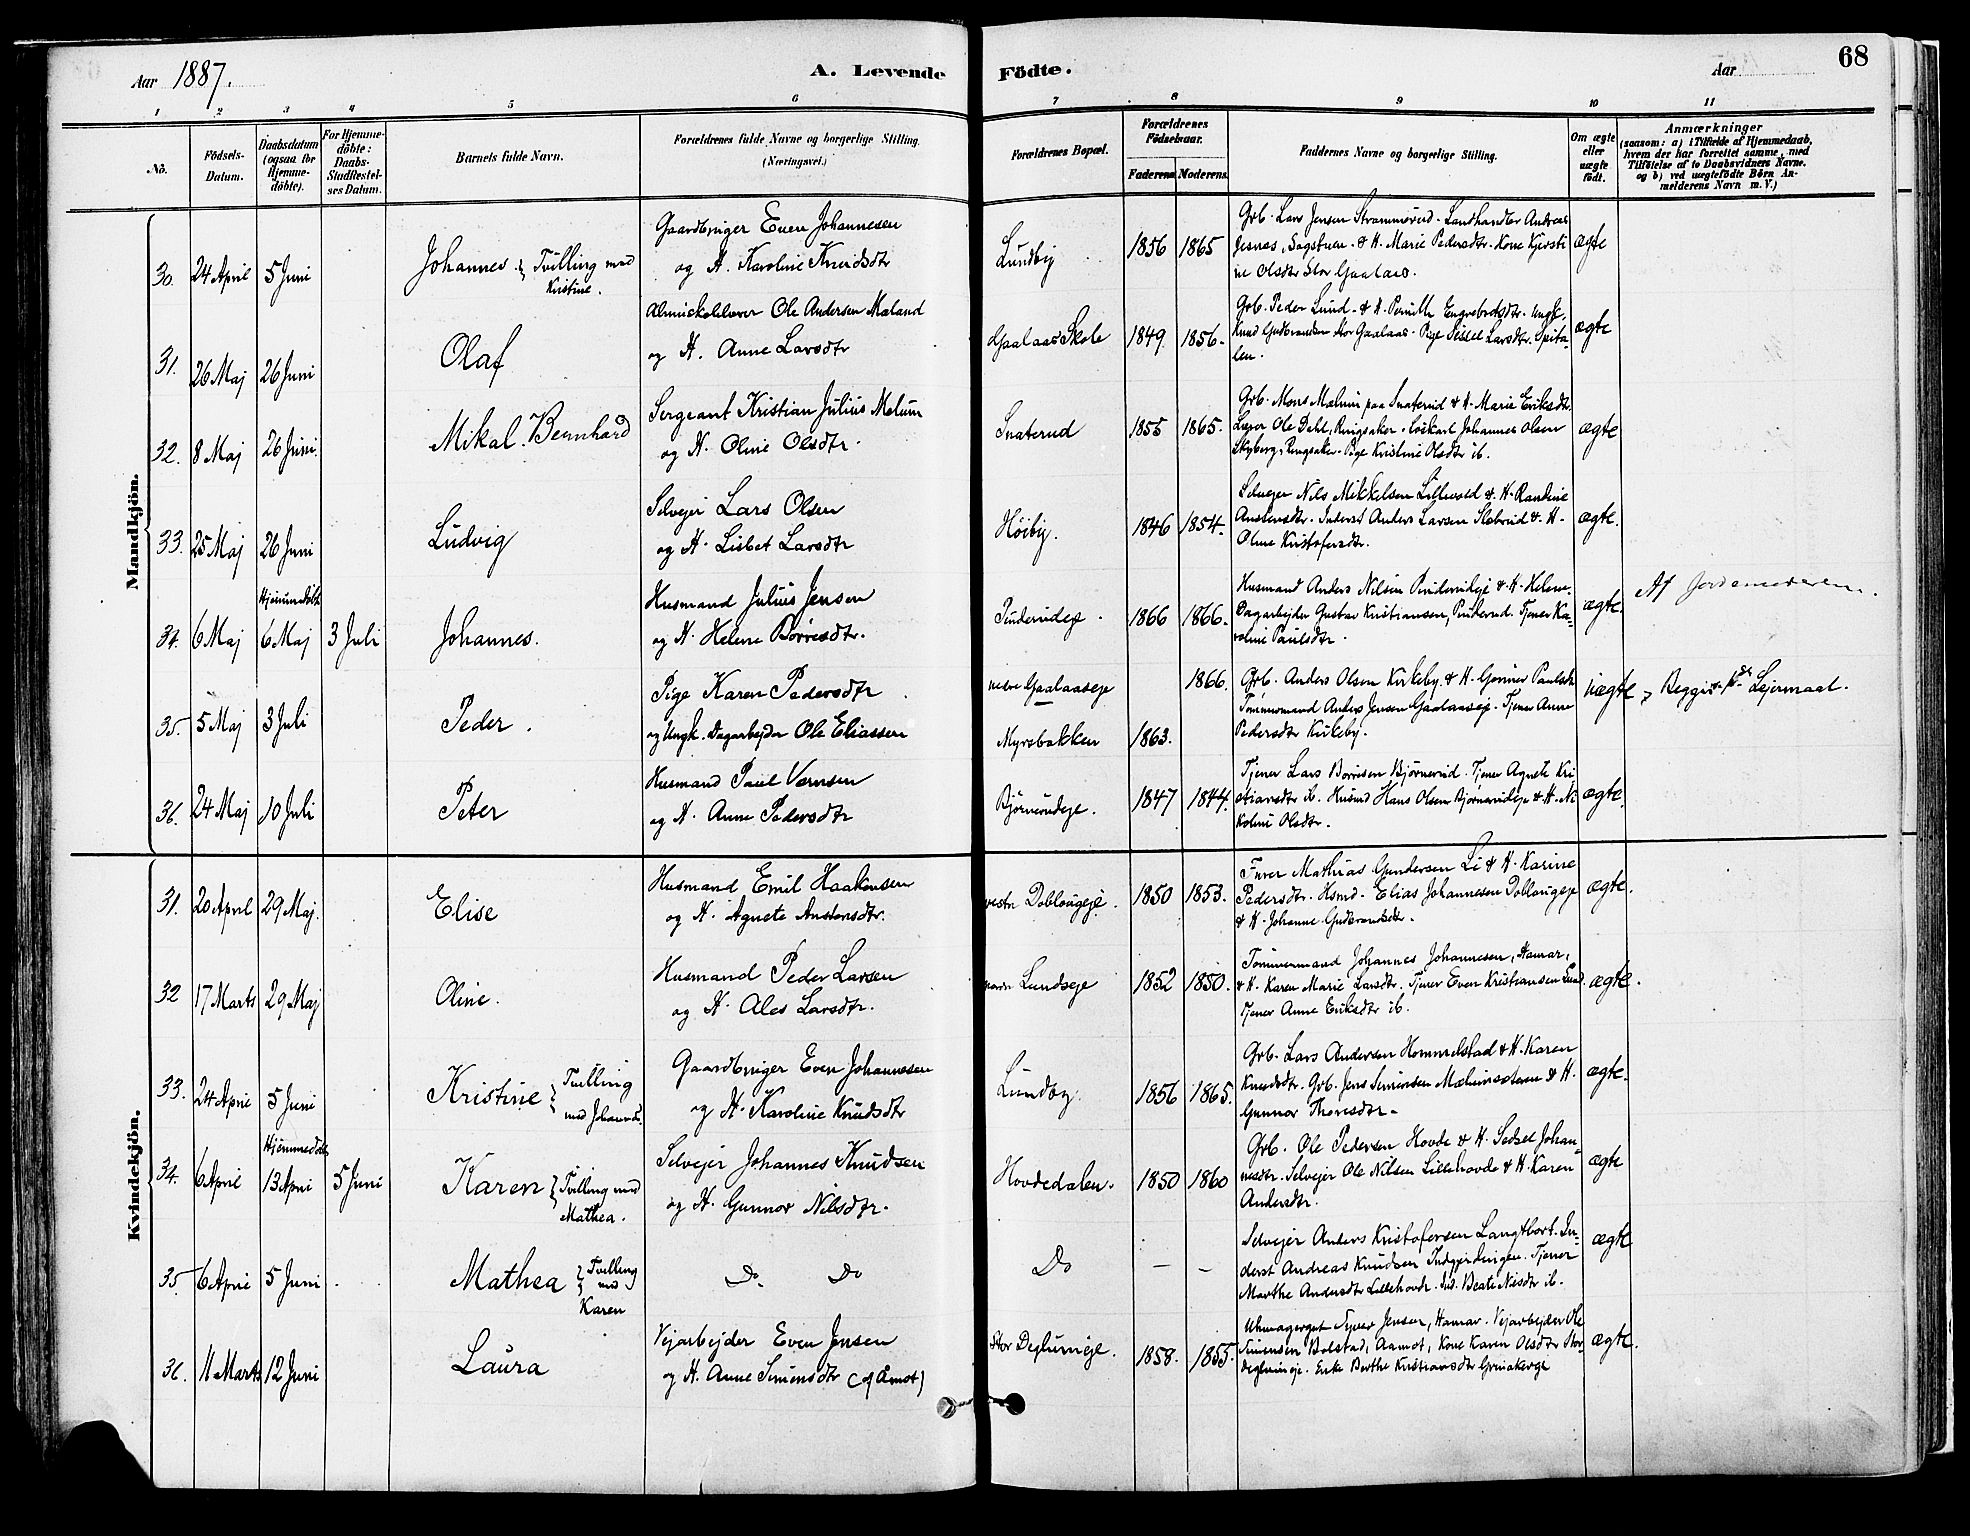 Aar 1887.
A. Levende
Födte.
Aar
68
1 2 3 4 5 6 7 8 9 10 11
No.
Födsels-Datum.
Daabsdatum (ogsaa for Hjemme-döbte).
For Hjemme-döbte: Daabs-Stadfæstel-ses Datum.
Barnets fulde Navn.
Forældrenes fulde Navne og borgerlige Stilling. (Næringsvei.)
Forældrenes Bopæl.
Forældrenes Födselsaar.
Faderens Moderens
Faddernes Navne og borgerlige Stilling.
Om ægte eller uægte födt.
Anmærkninger
(saasom: a) i Tilfælde af Hjemmedaab, hvem der har forrettet samme, med Tilföielse af to Daabsvidners Navne. og b) ved uægtefödte Börn An-melderens Navn m. V.)
Mandkjön.
30. 24 April 5 Juni Johannes. Tvilling med Kristine.
Gaardbruger Even Johannesen
og H. Karoline Knudsdtr
Lundby 1856 1865
Grb. Lars Jensen Strømmerud. Landhandler Andreas
Jesnæs, Sagstuen. & H. Marie Pedersdtr. Kone Kjersti
ne Olsdtr Stor Gaalaas.
ægte
31. 26 Maj 26 Juni Olaf
Almueskolelærer Ole Andersen Mæland
og H. Anne Larsdtr
Gaalaas Skole 1849 1856.
Grb. Peder Lund. & H. Pernille Engebretsdtr. Ungk.
Knud Gudbrandsen Stor Gaalaas. Pige Sidsel Larsdtr. Spita-
len.
ægte
32. 8 Maj 26 Juni. Mikal Bernhard
Sergeant Kristian Julius Melum
og H. Oline Olsdtr.
Snaterud 1855 1865.
Grb. Mons Mælum paa Snaterud & H. Marie Eriksdtr.
Lærer Ole Dahl, Ringsaker. Johannes Olsen
Skyberg, Ringsaker. Pige Kristine Olsdtr ib.
ægte
33. 25 Maj 26 Juni Ludvig
Selvejer Lars Olsen
og H. Lisbet Larsdtr
Høiby. 1846 1854.
Selvejer Nils Mikkelsen Lillevold & H. Randine
Austensdtr. Inderst Anders Larsen Slebrud & H.
Oline Kristofersdtr.
ægte.
34. 6 Maj Hjemmedøbt 6 Maj 3 Juli Johannes.
Husmand Julius Jensen
og H. Helene Børresdtr.
Pinderudeje. 1866 1866.
Husmand Anders Nilsen Pinderudeje & H. Helene.
Dagarbejder Gustav Kristiansen, Pinderud. Tjener Ka-
roline Paulsdtr.
ægte.
Af Jordemoderen.
35. 5 Maj 3 Juli Peder.
Pige Karen Pedersdtr
og Ungk. Dagarbejder Ole Eliassen
nedre Gaalaaseje 1866.
Myrebakken 1863.
Grb. Anders Olsen Kirkeby & H. Gunnor Paulsdtr
Tømmermand Anders Jensen Gaalaaseje. Tjener Anne
Pedersdtr Kirkeby.
uægte
Begges 1ste Lejermaal.
36. 24 Maj 10 Juli Peter
Husmand Paul Vernsen
og H. Anne Pedersdtr
Bjørnerudeje. 1847 1844.
Tjener Lars Børresen Bjørnerud. Tjener Agnete Kri
stiansdtr ib. Husmd Hans Olsen Bjørnerudeje & H. Ni
koline Olsdtr.
ægte.
Kvindekjön.
31. 20 April 29 Maj. Elise
Husmand Emil Haakensen
og H. Agnete Austensdtr.
vestre Doblougeje. 1850 1853.
Furer Mathias Gundersen Li & H. Karine
Pedersdtr. Hsmd. Elias Johannesen Doblougeje
& H. Johanne Gudbrandsdtr.
ægte.
32 17 Marts 29 Maj Oline.
Husmand Peder Larsen
og H. Ales Larsdtr.
Lundseje 1852 1850.
Tømmermand Johannes Johannesen, Hamar,
& H. Karen Marie Larsdtr. Tjener Even Kristiansen Lund.
Tjener Anne Eriksdtr ib.
ægte.
33. 24 April 5 Juni Kristine Tvilling med Johannes.
Gaardbruger Even Johannesen
og H. Karoline Knudsdtr
Lundby. 1856 1865.
Grb. Lars Andersen Hommelstad & H. Karen
Knudsdtr. Grb. Jens Simensen Mælumsæteren & H.
Gunnor Thoresdtr.
ægte.
34. 6 April Hjemmedøbt 13 April 5 Juni Karen Tvilling med Mathea.
Selvejer Johannes Knudsen
og H. Gunnor Nilsdtr.
Hovdedalen. 1850 1860
Grb. Ole Pedersen Hovde & H. Sidsel Johan-
nesdtr. Selvejer Ole Nilsen Lillehovde & H. Karen
Andersdtr.
ægte
35. 6 April 5 Juni. Mathea Tvilling med Karen
Do. Do
Do — —
Selvejer Anders Kristofersen Langtbort. In-
derst Andreas Knudsen Indgjerdingen. Tjener
Marthe Andersdtr Lillehovde. Ind. Beate Nilsdtr ib.
ægte
36. 11 Marts 12 Juni Laura
Vejarbejder Even Jensen
og H. Anne Simensdtr (af Amot)
Stor Deglumeje. 1858. 1855.
Uhrmager Syver Jensen, Hamar. Vejarbejder Ole
Simensen Bolstad, Aamot, Kone Karen Olsdtr Stor
deglumeje. Enke Berthe Kristiansdtr Grinaberge
ægte.